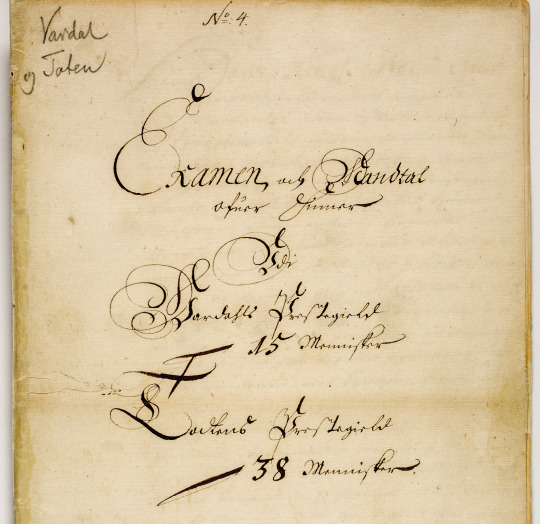 No. 4.
Vardal
og Toten
Examen, och Mandtal
ofuer Finner
Udi
Wardahls Prestegield
15 Mennisker
Todtens Prestegield
38 Mennisker.